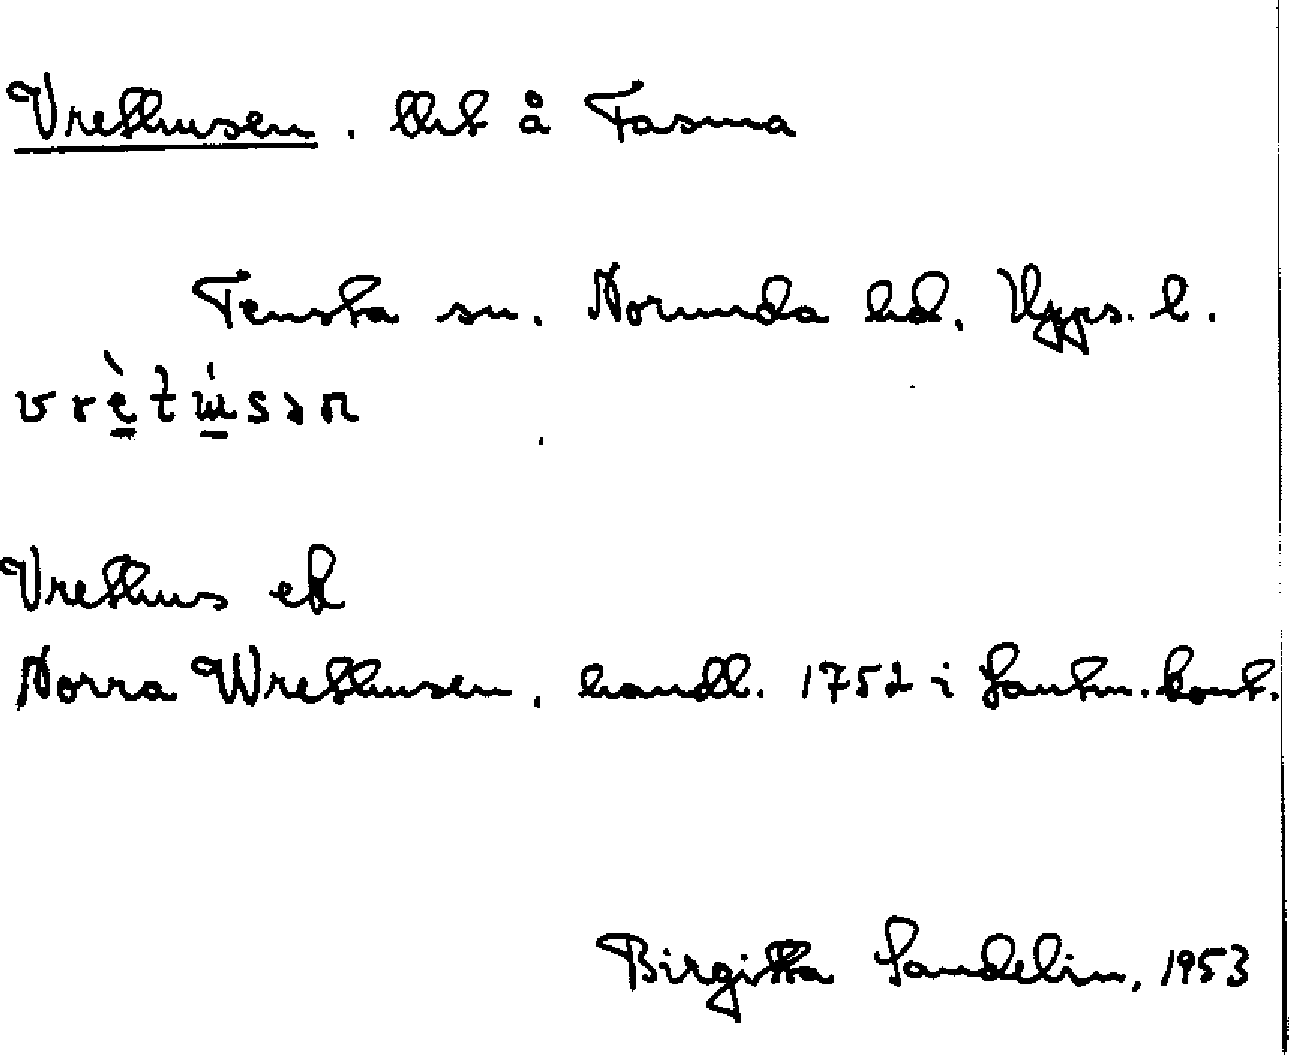 Vrethusen. tht å Fasma
Tensta sn. Norunda hd. Upps. l.
Vrethus ek
Norra Wrethusen, handl. 1752 i Lantm. kont.
Birgitta Sandelin, 1953